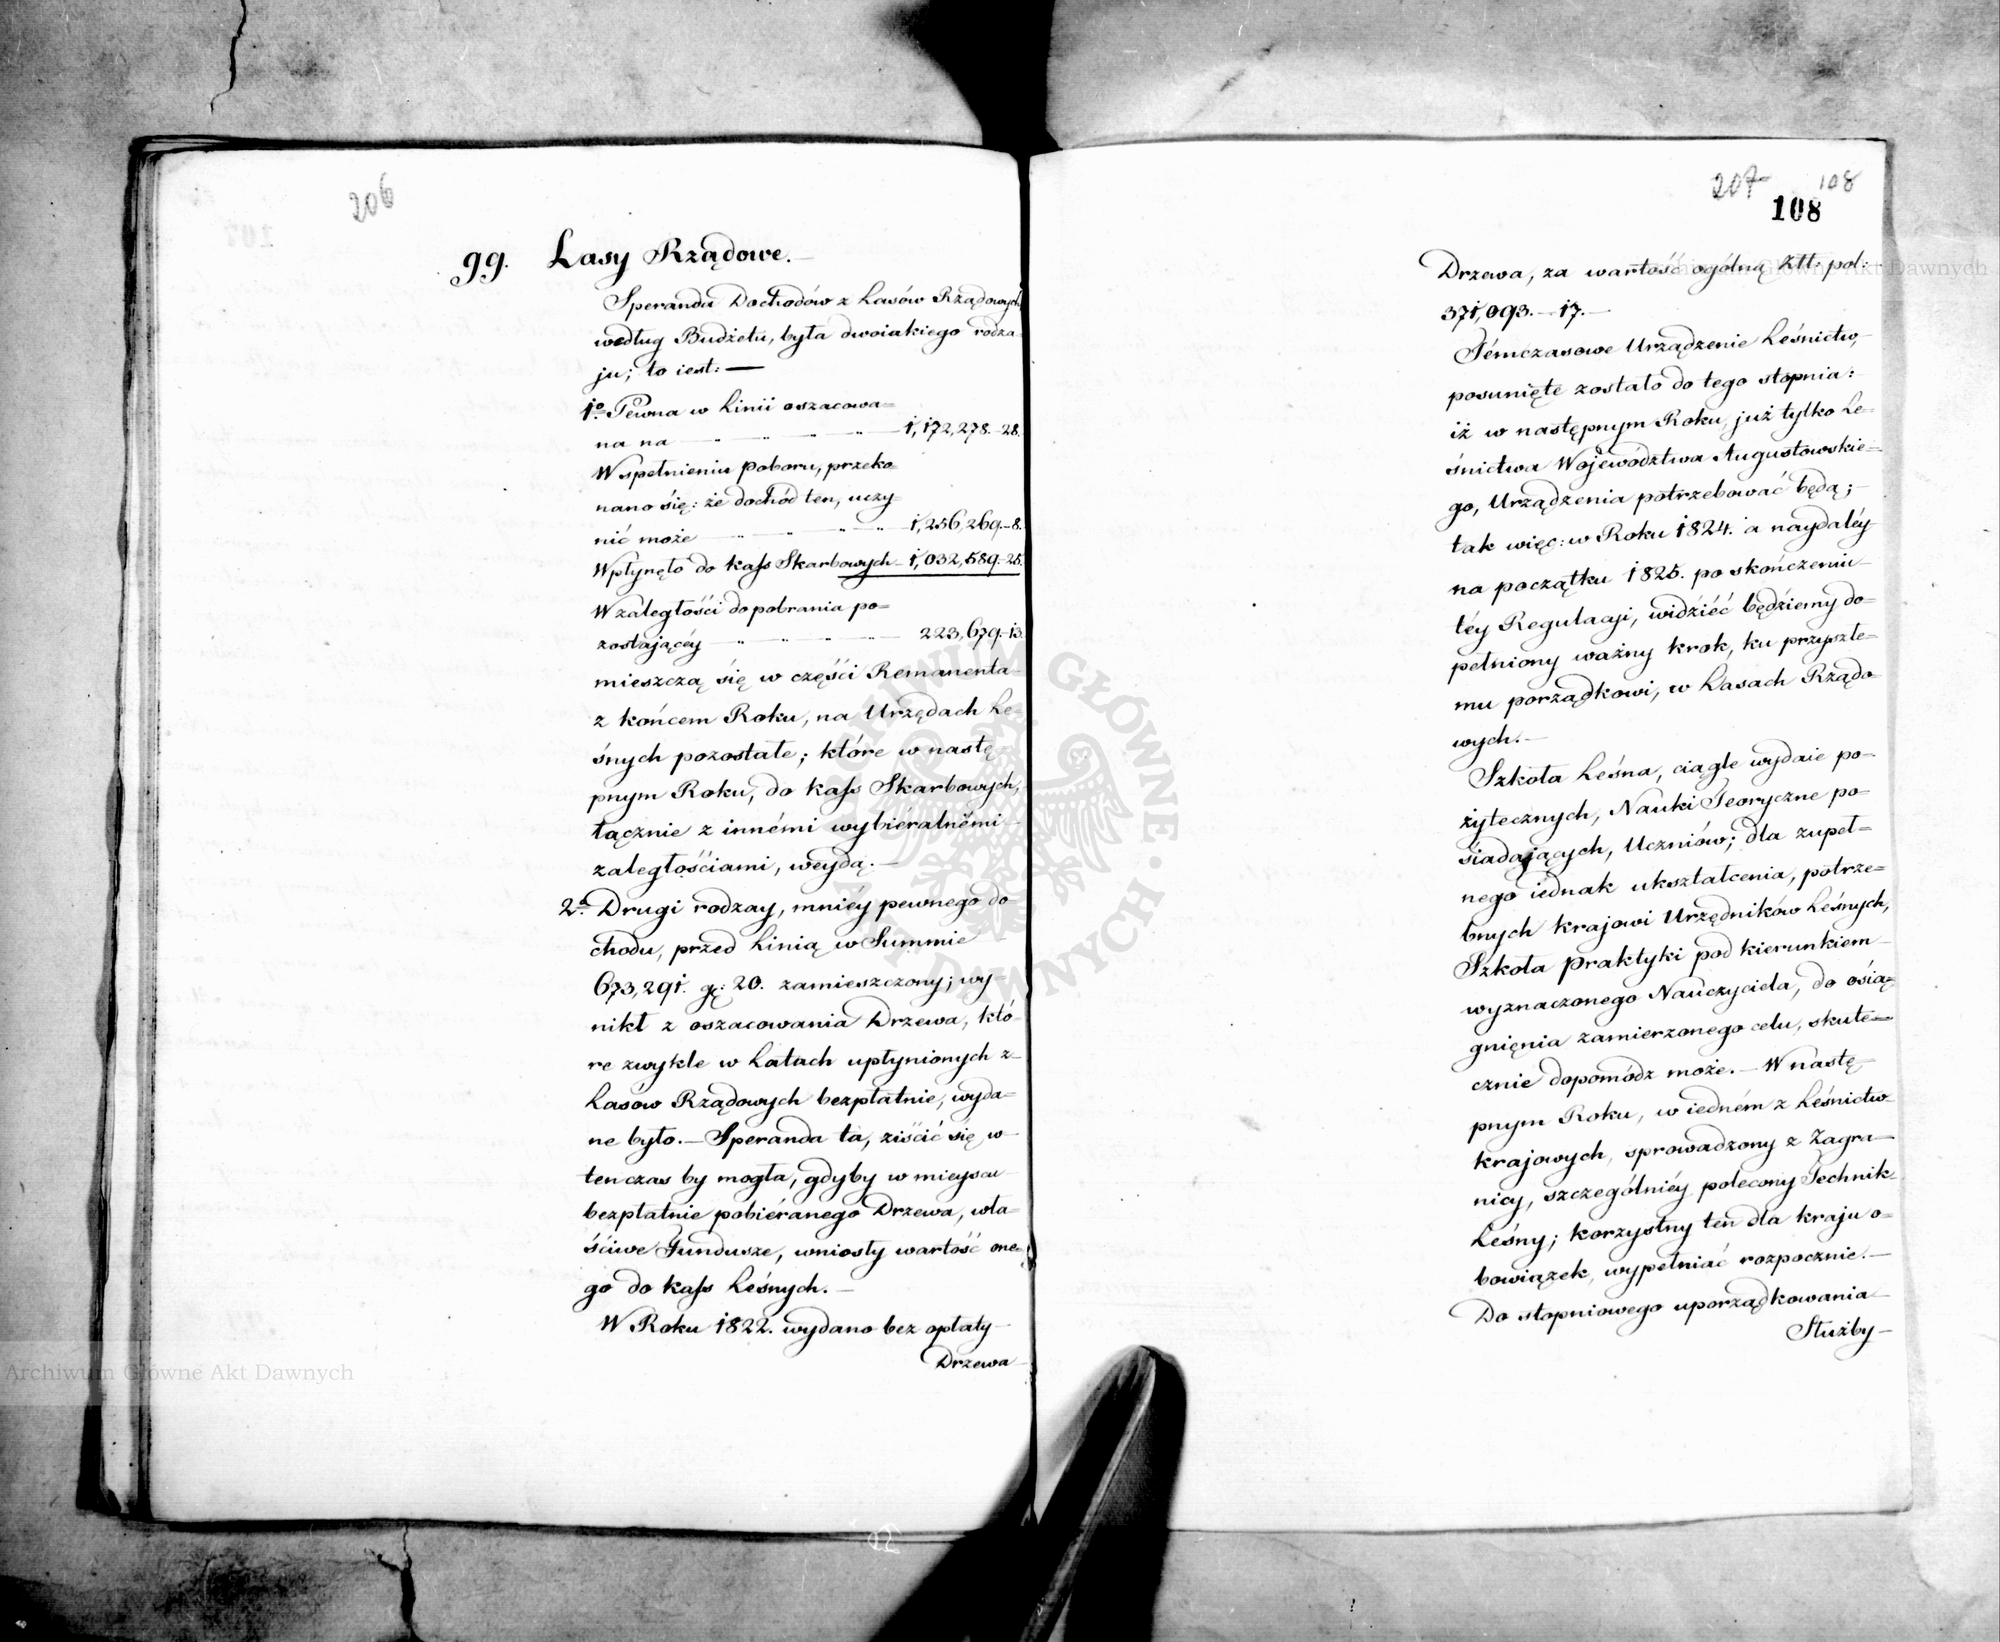 206
gg. Lasy Rządowe.—
Speranda Dochodów z Lasów Rządowych
według Budżetu, była dwoiakiego rodza-
ju; to iest: —
1o Pewna w Linii oszacowa=
na na — " " " — 1,172,278.-28.
W spełnieniu poboru, przeko
nano się: że dochód ten, uczy=
nić może — " " — 1,256,269.-8.
Wpłynęło do kass Skarbowych — 1,032,589.-25.
W zaległości do pobrania po=
zostającéy — " " " — 223,679.-13.
mieszczą się w części Remanenta
z końcem Roku, na Urzędach Le=
śnych pozostałe; które w nastę=
pnym Roku, do kass Skarbowych,
łącznie z innémi wybiéralnémi
zaległościami, weydą.—
2o Drugi rodzay, mniéy pewnego do
chodu, przed Linią w Summie
673,291. gr: 20. zamieszczony; wy=
nikł z oszacowania Drzewa, któ-
re zwykle w Latach upłynionych z
Lasów Rządowych bezpłatnie, wyda=
ne było.— Speranda ta, ziścić się w
tenczas by mogła, gdyby w mieyscu
bezpłatnie pobiéranego Drzewa, wła=
ściwe Fundusze, wniosły wartość one=
go do kass Leśnych.—
W Roku 1822. wydano bez opłaty
Drzewa
207 108
108
Drzewa, za wartość ogólną Złł: pol:
371,093.—17.—
Témczasowe Urządzenie Leśnictw,
posunięte zostało do tego stopnia:
iż w następnym Roku, już tylko Le=
śnictwa Województwa Augustowskie=
go, Urządzenia potrzebować będą;—
tak więc: w Roku 1824. a naydaléy
na początku 1825. po skończeniu
téy Regulacji, widziéć będziemy do=
pełniony ważny krok, ku przyszłe=
mu porządkowi, w Lasach Rządo
wych.—
Szkoła Leśna, ciągle wydaie po=
żytecznych, Nauki Teoryczne po=
siadających, Uczniów; dla zupeł=
nego iednak ukształcenia, potrze=
bnych krajowi Urzędników Leśnych,
Szkoła praktyki pod kierunkiem
wyznaczonego Nauczyciela, do osią=
gnięnia zamierzonego celu, skute=
cznie dopomódz może.— W nastę=
pnym Roku, w iedném z Leśnictw
krajowych, sprowadzony z Zagra=
nicy, szczególniéy polecony Technik
Leśny; korzystny ten dla kraju o=
bowiązek, wypełniać rozpocznie.—
Do stopniowego uporządkowania
Służby—
Archiwum Główne Akt Dawnych
Archiwum Główne Akt Dawnych
ARCHIWUM GŁÓWNE · AKT DAWNYCH ·